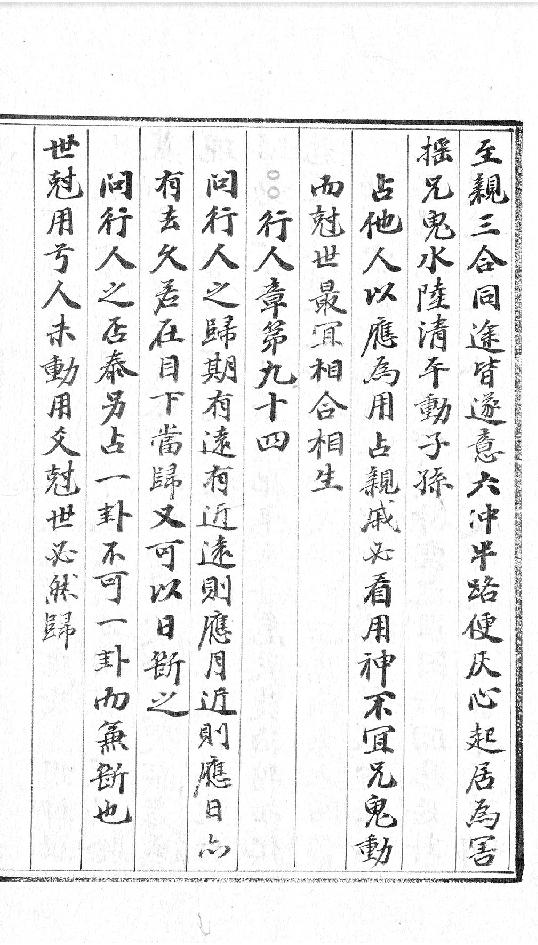 至親三合同途皆遂意六冲半路便灰心起居為害
揺兄鬼水陸清平動子孫
占他人以應為用占親戚必看用神不冝兄鬼動
而尅世最冝相合相生
行人章第九十四
問行人之歸期有遠有近遠則應月近則應日亦
有去久若在目下當歸又可以日斷之
問行人之否泰另占一卦不可一卦而兼斷也
世尅用兮人未動用爻尅世必然歸